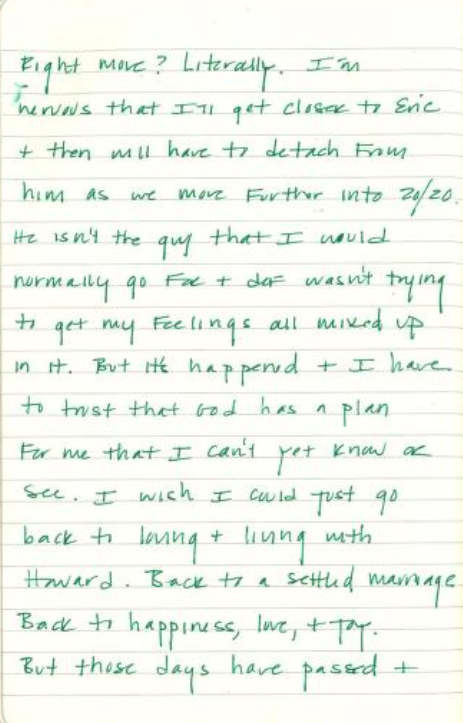 Right move? Literally. I'm
nervous that I'll get closer to Eric
+ then will have to detach from
him as we move further into 20/20.
He isn't the guy that I would
normally go for + def wasn't trying
to get my feelings all mixed up
in it. But it's happened + I have
to trust that God has a plan
for me that I can't yet know or
see. I wish I could just go
back to loving + living with
Howard. Back to a settled marriage.
Back to happiness, love, + joy.
But those days have passed +